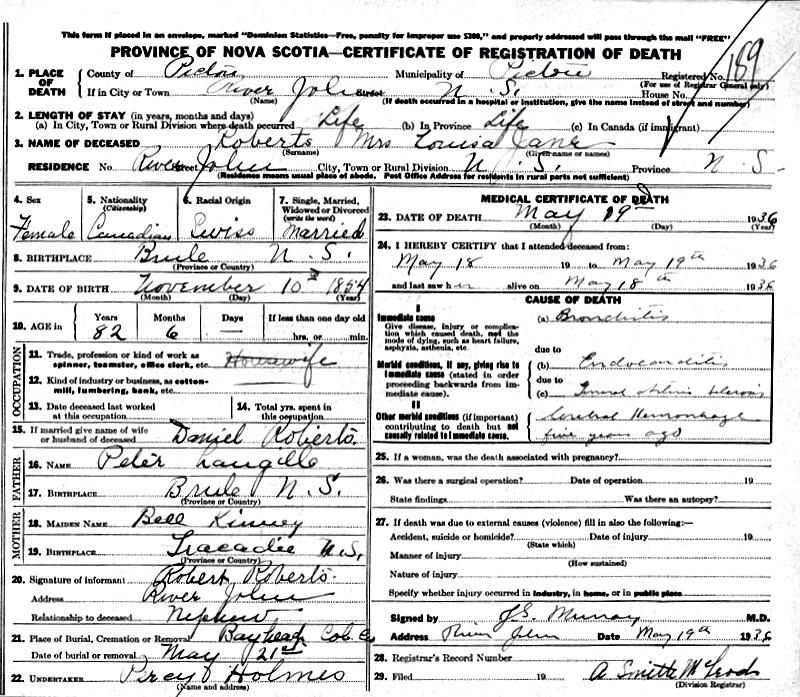 This form if placed in an envelope, marked "Dominion Statistics—Free, penalty for improper use $300," and properly addressed will pass through the mail "FREE"
PROVINCE OF NOVA SCOTIA—CERTIFICATE OF REGISTRATION OF DEATH
189
1. PLACE OF DEATH { County of Pictou Municipality of Pictou Registered No.
(For use of Registrar General only)
If in City or Town River John Street N. S. House No.
(Name) (If death occurred in a hospital or institution, give the name instead of street and number)
2. LENGTH OF STAY (in years, months and days)
(a) In City, Town or Rural Division where death occurred Life (b) In Province Life (c) In Canada (if immigrant)
3. NAME OF DECEASED Roberts Mrs Louisa Jane
(Surname) (Given name or names)
RESIDENCE No River Street John City, Town or Rural Division N. S. Province N. S.
(Residence means usual place of abode. Post Office Address for residents in rural parts not sufficient)
4. Sex Female
5. Nationality (Citizenship) Canadian
6. Racial Origin Swiss
7. Single, Married, Widowed or Divorced (write the word) Married
8. BIRTHPLACE Brule N. S.
(Province or Country)
9. DATE OF BIRTH November 10 1854
(Month) (Day) (Year)
10. AGE in Years 82 Months 6 Days — If less than one day old hrs. or min.
OCCUPATION
11. Trade, profession or kind of work as spinner, teamster, office clerk, etc. Housewife
12. Kind of industry or business, as cotton-mill, lumbering, bank, etc.
13. Date deceased last worked at this occupation
14. Total yrs. spent in this occupation
15. If married give name of wife or husband of deceased Daniel Roberts.
FATHER
16. NAME Peter Langille
17. BIRTHPLACE Brule N. S.
(Province or Country)
MOTHER
18. MAIDEN NAME Bell Kinney
19. BIRTHPLACE Tracadie N.S.
(Province or Country)
20. Signature of informant Robert Roberts.
Address River John
Relationship to deceased Nephew
21. Place of Burial, Cremation or Removal Bayhead Col. Co
Date of burial or removal May 21st
22. UNDERTAKER Percy Holmes
(Name and address)
MEDICAL CERTIFICATE OF DEATH
23. DATE OF DEATH May 19 1936
(Month) (Day) (Year)
24. I HEREBY CERTIFY that I attended deceased from:
May 18 19 to May 19th 1936
and last saw her alive on May 18th 1936
CAUSE OF DEATH
I
Immediate cause
Give disease, injury or complication which caused death, not the mode of dying, such as heart failure, asphyxia, asthenia, etc.
(a) Bronchitis
due to
Morbid conditions, if any, giving rise to immediate cause (stated in order proceeding backwards from immediate cause).
(b) Endocarditis
due to
(c)
II
Other morbid conditions (if important) contributing to death but not causally related to immediate cause.
Cerebral Hemorrhage
five years ago
25. If a woman, was the death associated with pregnancy?
26. Was there a surgical operation? Date of operation 19
State findings Was there an autopsy?
27. If death was due to external causes (violence) fill in also the following:—
Accident, suicide or homicide? Date of injury 19
(State which)
Manner of injury
(How sustained)
Nature of injury
Specify whether injury occurred in industry, in home, or in public place
Signed by J.E. Murray M.D.
Address River John Date May 19th 1936
28. Registrar's Record Number
29. Filed 19 A Smith McLeod
(Division Registrar)